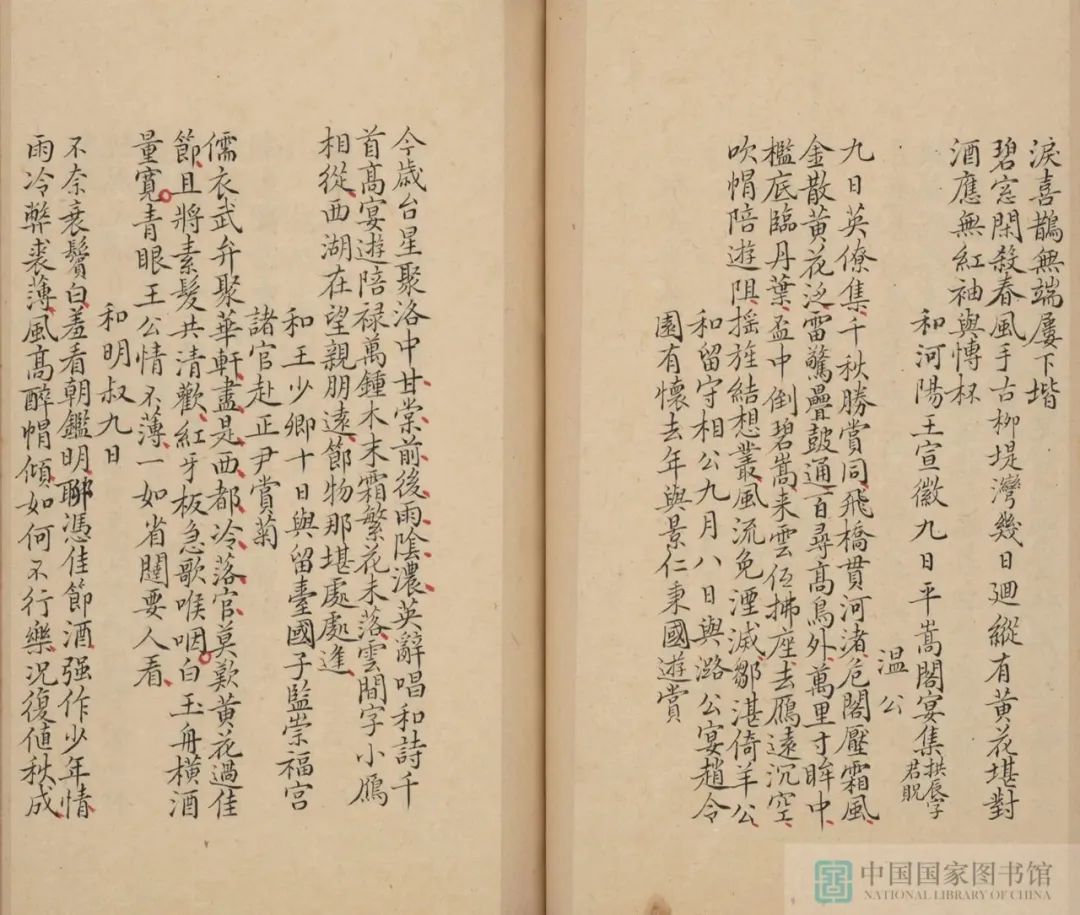 淚喜鵲無端屢下堦
碧窓閑殺春風手古柳堤灣幾日廻縱有黃花堪對
酒應無紅袖與慱杯
和河陽王宣徽九日平嵩閣宴集拱辰字君貺
温公
九日英僚集千秋勝賞同飛橋貫河渚危閣壓霜風
金散黃花泛雷驚疊皷通百尋高鳥外萬里寸眸中
檻底臨丹葉盃中倒碧嵩来雲伍拂座去鴈遠沉空
吹帽陪遊阻揺旌結想叢風流免湮滅鄒湛倚羊公
和留守相公九月八日與潞公宴趙令
園有懷去年與景仁秉國遊賞
今歲台星聚洛中甘棠前後雨陰濃英辭唱和詩千
首高宴遊陪禄萬鍾木末霜繁花未落雲間字小鴈
相從西湖在望親朋遠節物那堪處處逢
和王少卿十日與留臺國子監崇福宮
諸官赴正尹賞菊
儒衣武弁聚華軒盡是西都冷落官莫歎黃花過佳
節且將素髮共清歡紅牙板急歌喉咽白玉舟橫酒
量寛青眼王公情不薄一如省闥要人看
和明叔九日
不奈衰鬢白羞看朝鑑明聊憑佳節酒强作少年情
雨冷弊裘薄風高醉帽傾如何不行樂况復值秋成
中国国家图书馆
NATIONAL LIBRARY OF CHINA